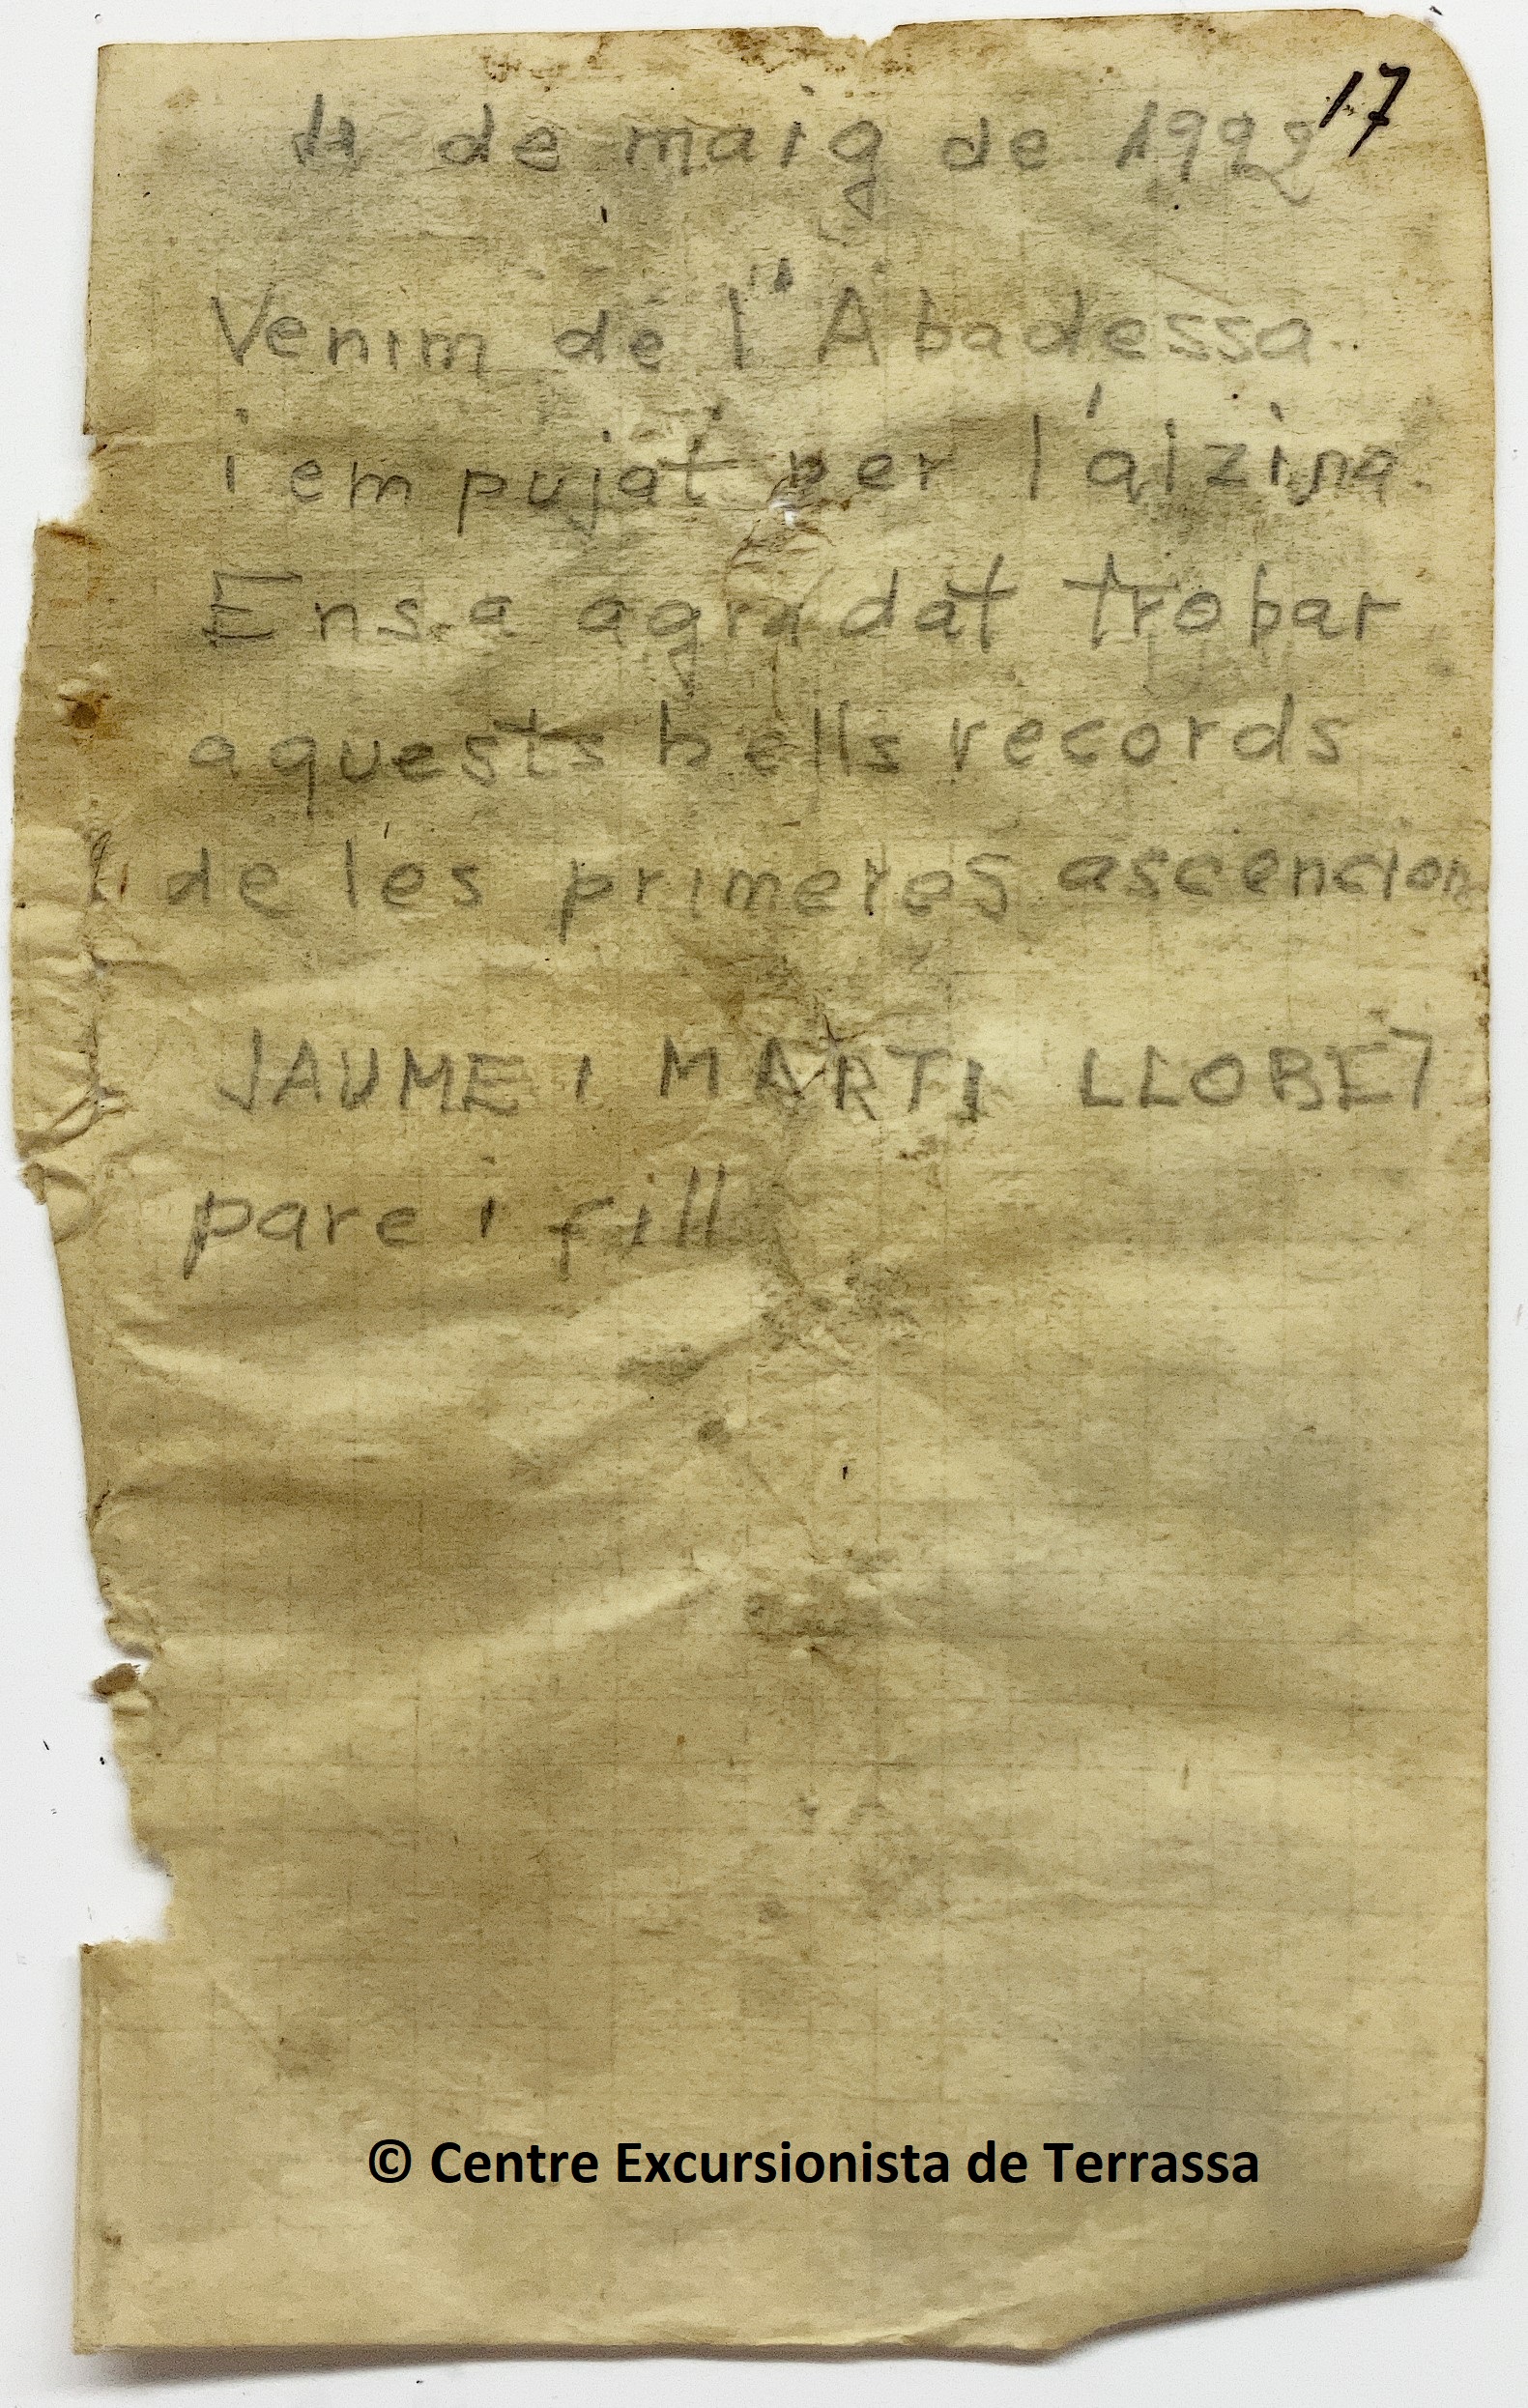 17
11 de maig de 1992
Venim de l'Abadessa
i em pujat per l'alzina
Ens a agradat trobar
aquests bells records
de les primeres ascencion
JAUME i MARTI LLOBET
pare i fill
© Centre Excursionista de Terrassa